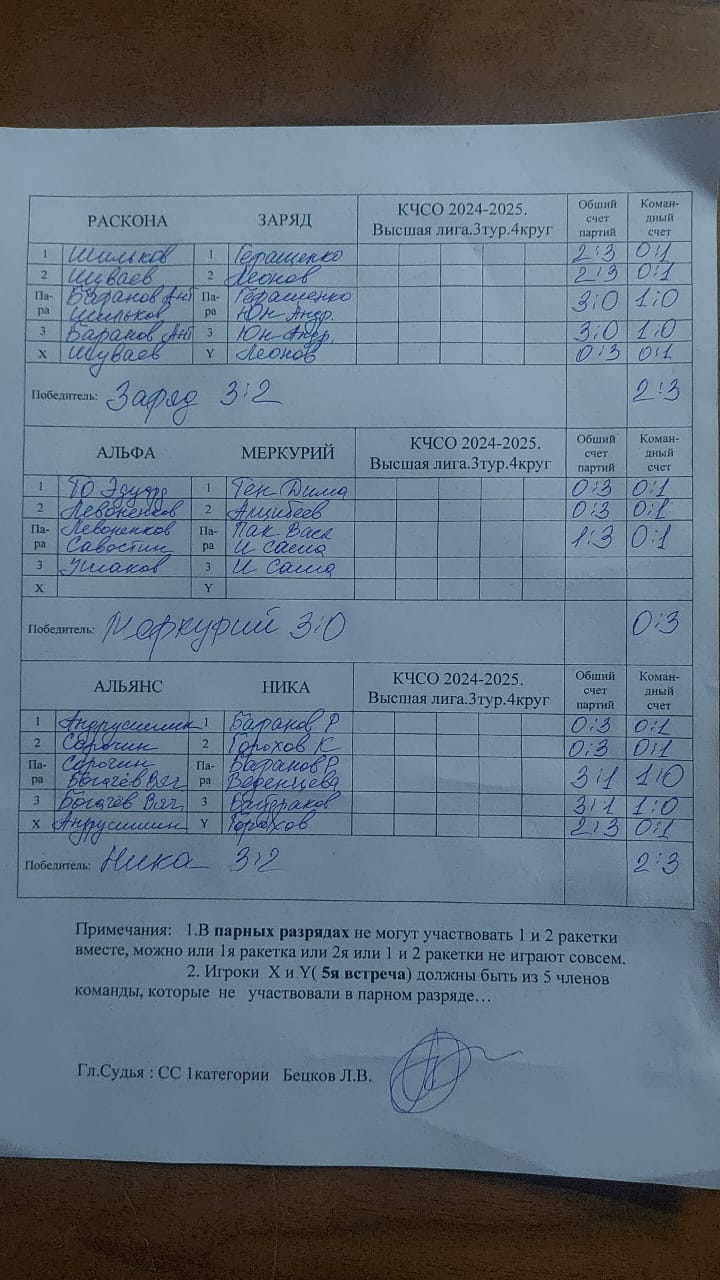 РАСКОНА ЗАРЯД КЧСО 2024-2025. Высшая лига.3тур.4круг Общий счет партий Коман-дный счет
1 Шильков 1 Геращенко 2:3 0:1
2 Шуваев 2 Леонов 2:3 0:1
Па-ра Баранов Ант Па-ра Геращенко 3:0 1:0
Шильков Юн Андр.
3 Баранов Ант 3 Юн Андр. 3:0 1:0
X Шуваев Y Леонов 0:3 0:1
Победитель: Заряд 3:2 2:3
АЛЬФА МЕРКУРИЙ КЧСО 2024-2025. Высшая лига.3тур.4круг Общий счет партий Коман-дный счет
1 ТО Эдуард 1 Тен Дима 0:3 0:1
2 Левоненков 2 Анцибеев 0:3 0:1
Па-ра Левоненков Па-ра Пак Вася 1:3 0:1
Савостин И Саша
3 Ушаков 3 И Саша
X Y
Победитель: Меркурий 3:0 0:3
АЛЬЯНС НИКА КЧСО 2024-2025. Высшая лига.3тур.4круг Общий счет партий Коман-дный счет
1 1 Баранов Р 0:3 0:1
2 Сорочин 2 Горохов К 0:3 0:1
Па-ра Сорочин Па-ра Баранов Р 3:1 1:0
Богачёв Вяч Веденцева
3 Богачёв Вяч, 3 Байбраков 3:1 1:0
X Y Горохов 2:3 0:1
Победитель: Ника 3:2 2:3
Примечания: 1.В парных разрядах не могут участвовать 1 и 2 ракетки
вместе, можно или 1я ракетка или 2я или 1 и 2 ракетки не играют совсем.
2. Игроки X и Y( 5я встреча) должны быть из 5 членов
команды, которые не участвовали в парном разряде…
Гл.Судья : СС 1категории Бецков Л.В.